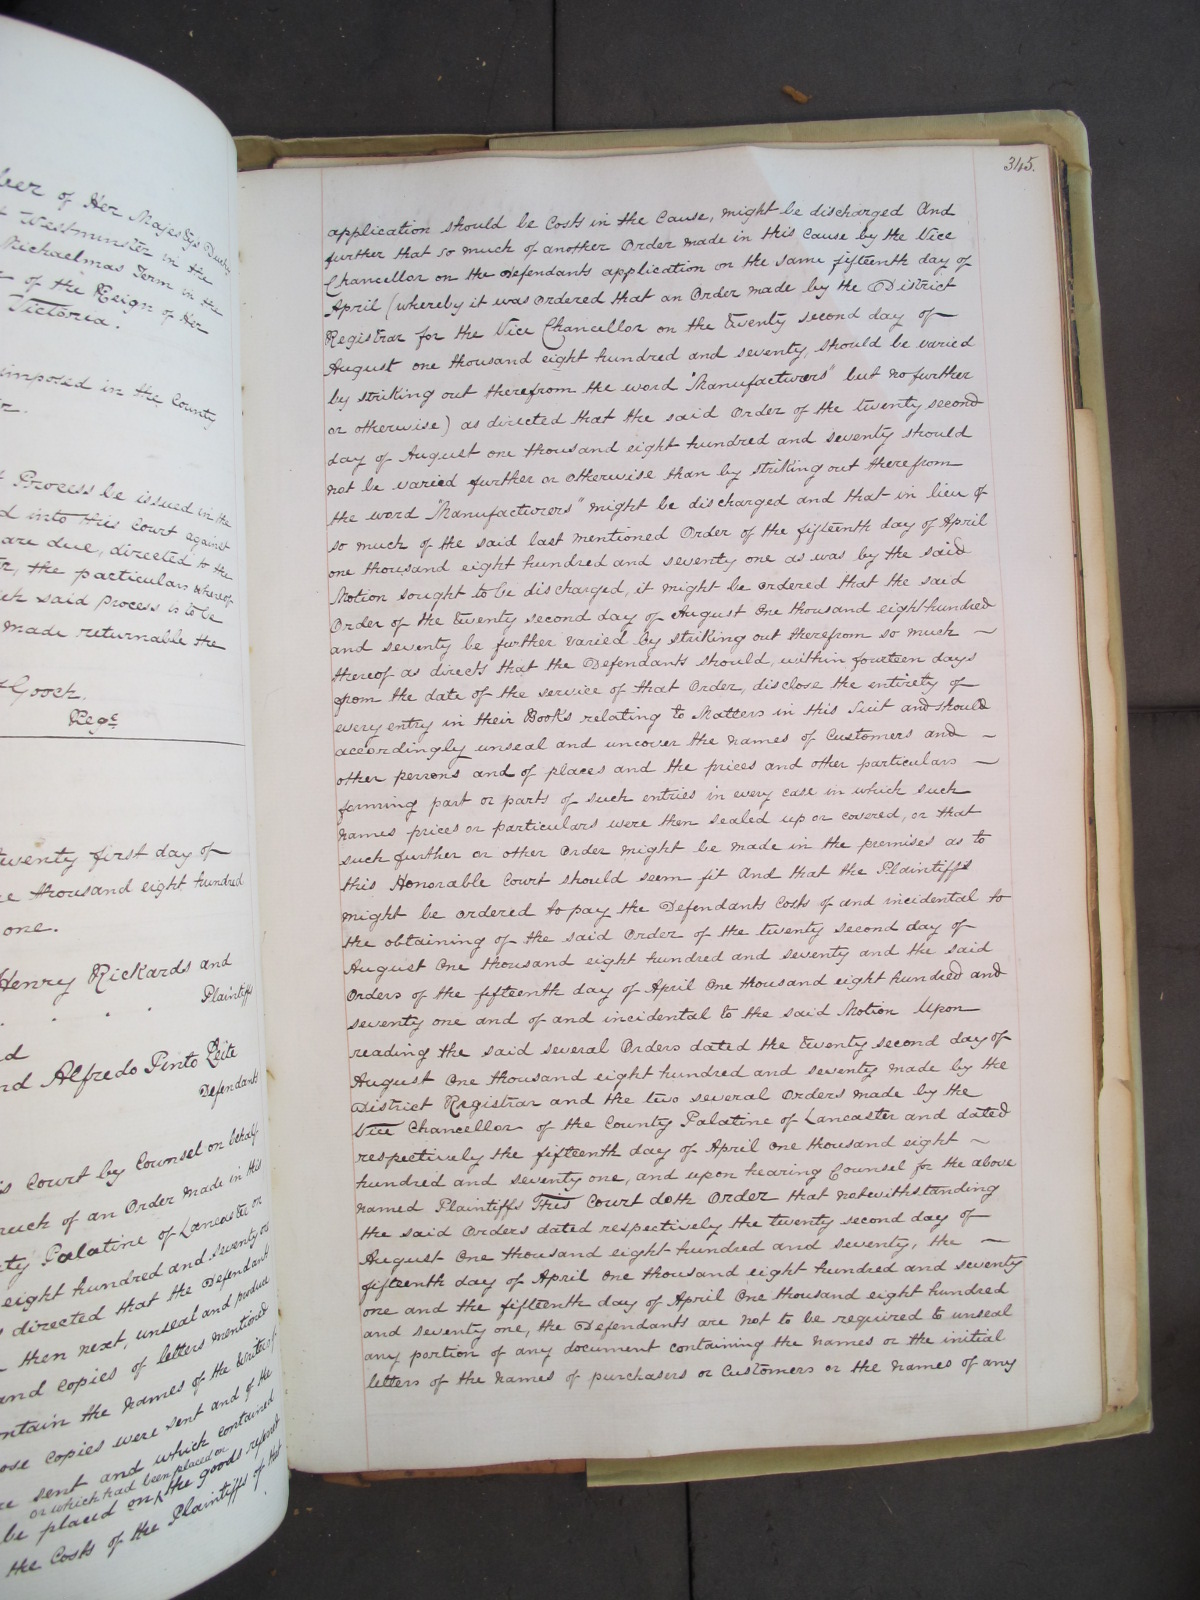 ber of Her Majestys Duchy
t Westminster in the
Michaelmas Term in the
of the Reign of Her
Victoria.
imposed in the County
Process be issued in the
d into this Court against
are due, directed to the
the particulars whereof
ch said process is to be
made returnable the
Gooch.
Regr
twenty first day of
e thousand eight hundred
one.
Henry Rickards and
Plaintiffs
d
nd Alfredo Pinto Leite
Defendants
is Court by Counsel on behalf
much of an Order made in this
ty Palatine of Lancaster on
eight hundred and seventy one
directed that the Defendants
then next, unseal and produce
and copies of letters mentioned
ntain the names of the writers
ose copies were sent and of the
re sent and which contained
or which had been placed on
be placed on the goods
the Costs of the Plaintiffs of that
345.
application should be Costs in the Cause, might be discharged And
further that so much of another Order made in this Cause by the Vice
Chancellor on the Defendants application on the same fifteenth day of
April (whereby it was Ordered that an Order made by the District
Registrar for the Vice Chancellor on the twenty second day of
August one thousand eight hundred and seventy, should be varied
by striking out therefrom the word "Manufacturers" but no further
or otherwise) as directed that the said Order of the twenty second
day of August one thousand eight hundred and seventy should
not be varied further or otherwise than by striking out therefrom
the word "Manufacturers" might be discharged and that in lieu of
so much of the said last mentioned Order of the fifteenth day of April
one thousand eight hundred and seventy one as was by the said
Motion sought to be discharged, it might be ordered that the said
Order of the twenty second day of August One thousand eight hundred
and seventy be further varied by striking out therefrom so much
thereof as directs that the Defendants should, within fourteen days
from the date of the service of that Order, disclose the entirety of
every entry in their Books relating to Matters in this Suit and should
accordingly unseal and uncover the names of Customers and
other persons and of places and the prices and other particulars
forming part or parts of such entries in every case in which such
names prices or particulars were then sealed up or covered, or that
such further or other Order might be made in the premises as to
this Honorable Court should seem fit And that the Plaintiffs
might be ordered to pay the Defendants Costs of and incidental to
the obtaining of the said Order of the twenty second day of
August One thousand eight hundred and seventy and the said
Orders of the fifteenth day of April One thousand eight hundred and
seventy one and of and incidental to the said Motion Upon
reading the said several Orders dated the twenty second day of
August One thousand eight hundred and seventy made by the
District Registrar and the two several Orders made by the
Vice Chancellor of the County Palatine of Lancaster and dated
respectively the fifteenth day of April One thousand eight
hundred and seventy one, and upon hearing Counsel for the above
named Plaintiffs This Court doth Order that notwithstanding
the said Orders dated respectively the twenty second day of
August One thousand eight hundred and seventy, the
fifteenth day of April One thousand eight hundred and seventy
one and the fifteenth day of April One thousand eight hundred
and seventy one, the Defendants are not to be required to unseal
any portion of any document containing the names or the initial
letters of the names of purchasers or Customers or the names of any